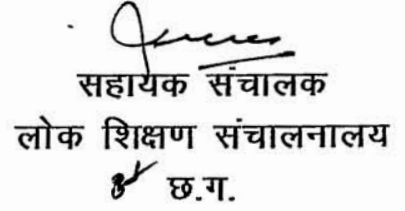 सहायक संचालक
लोक शिक्षण संचालनालय
छ.ग.